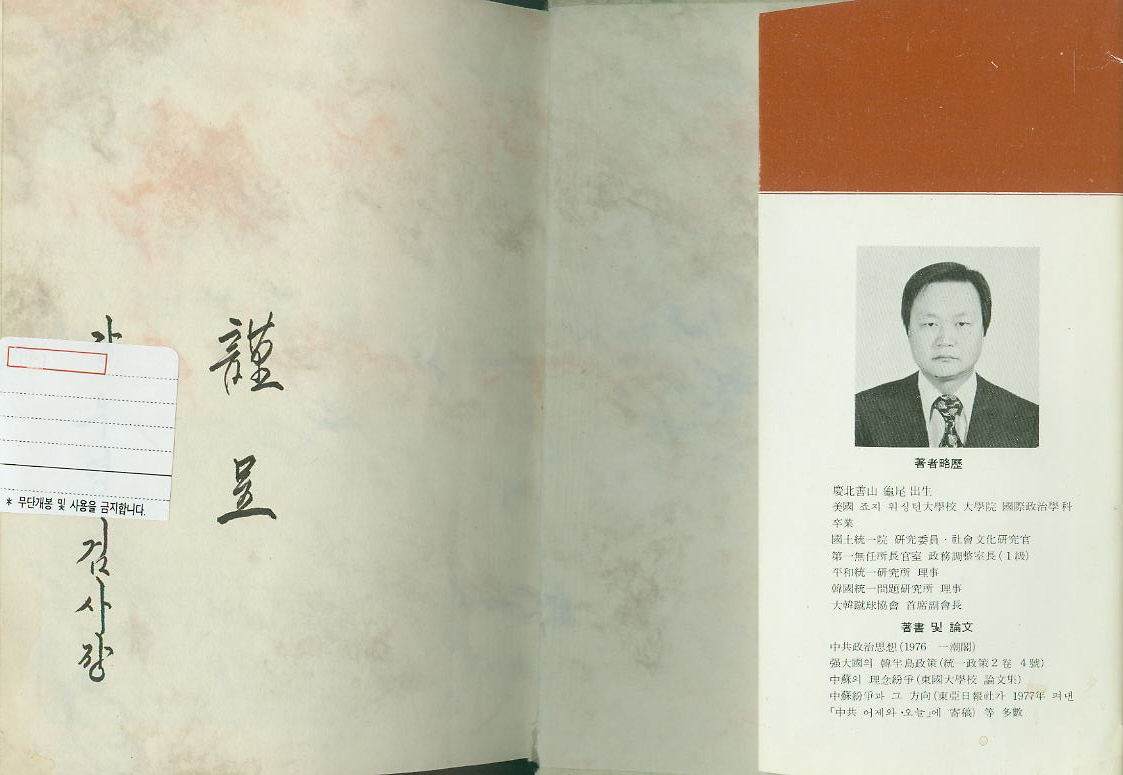 謹呈
검사장
* 무단개봉 및 사용을 금지합니다.
著者略歷
慶北善山 龜尾 出生
美國 죠지 워싱턴大學校 大學院 國際政治學科
卒業
國土統一院 硏究委員·社會文化硏究官
第一無任所長官室 政務調整室長(1級)
平和統一硏究所 理事
韓國統一問題硏究所 理事
大韓蹴球協會 首席副會長
著書 및 論文
中共政治思想(1976 一潮閣)
强大國의 韓半島政策(統一政策2卷 4號)
中蘇의 理念紛爭(東國大學校 論文集)
中蘇紛爭과 그 方向(東亞日報社가 1977年 펴낸
「中共 어제와·오늘」에 寄稿) 等 多數